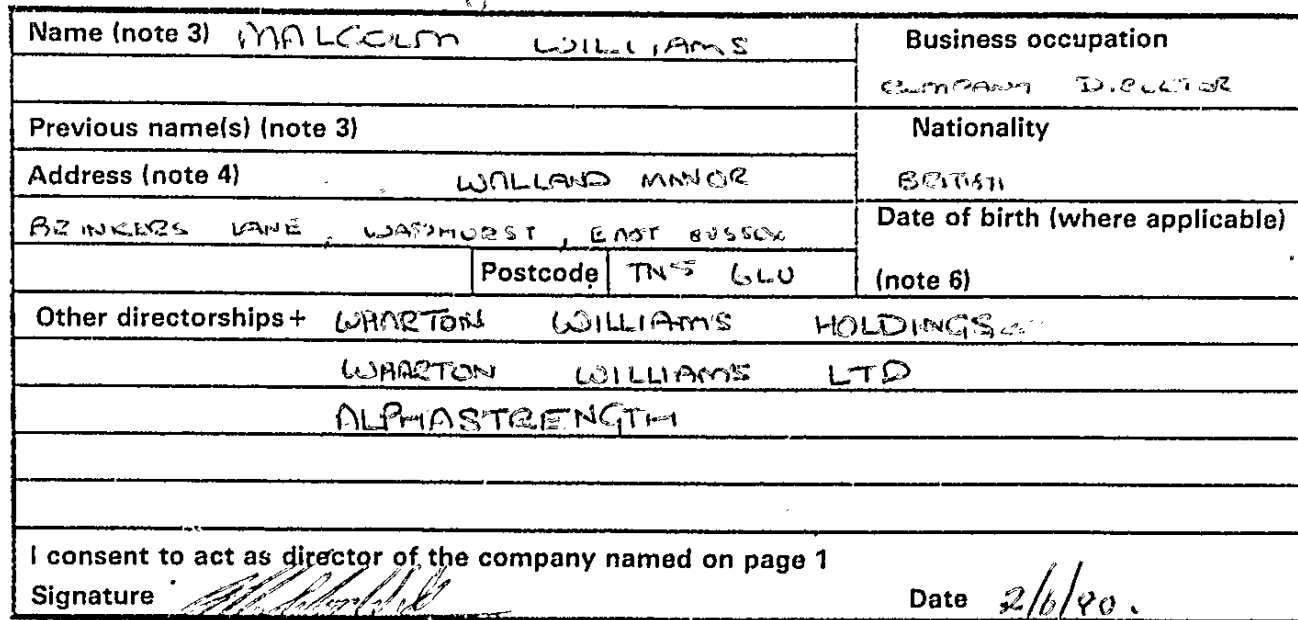 Name (note 3) MALCOLM WILLIAMS Business occupation
COMPANY DIRECTOR
Previous name(s) (note 3) Nationality
Address (note 4) WALLAND MANOR BRITISH
WADHURST, EAST SUSSEX Date of birth (where applicable)
Postcode TN5 6LU (note 6)
Other directorships + WHARTON WILLIAMS HOLDINGS
WHARTON WILLIAMS LTD
ALPHASTRENGTH
I consent to act as director of the company named on page 1
Signature Date 2/6/90.